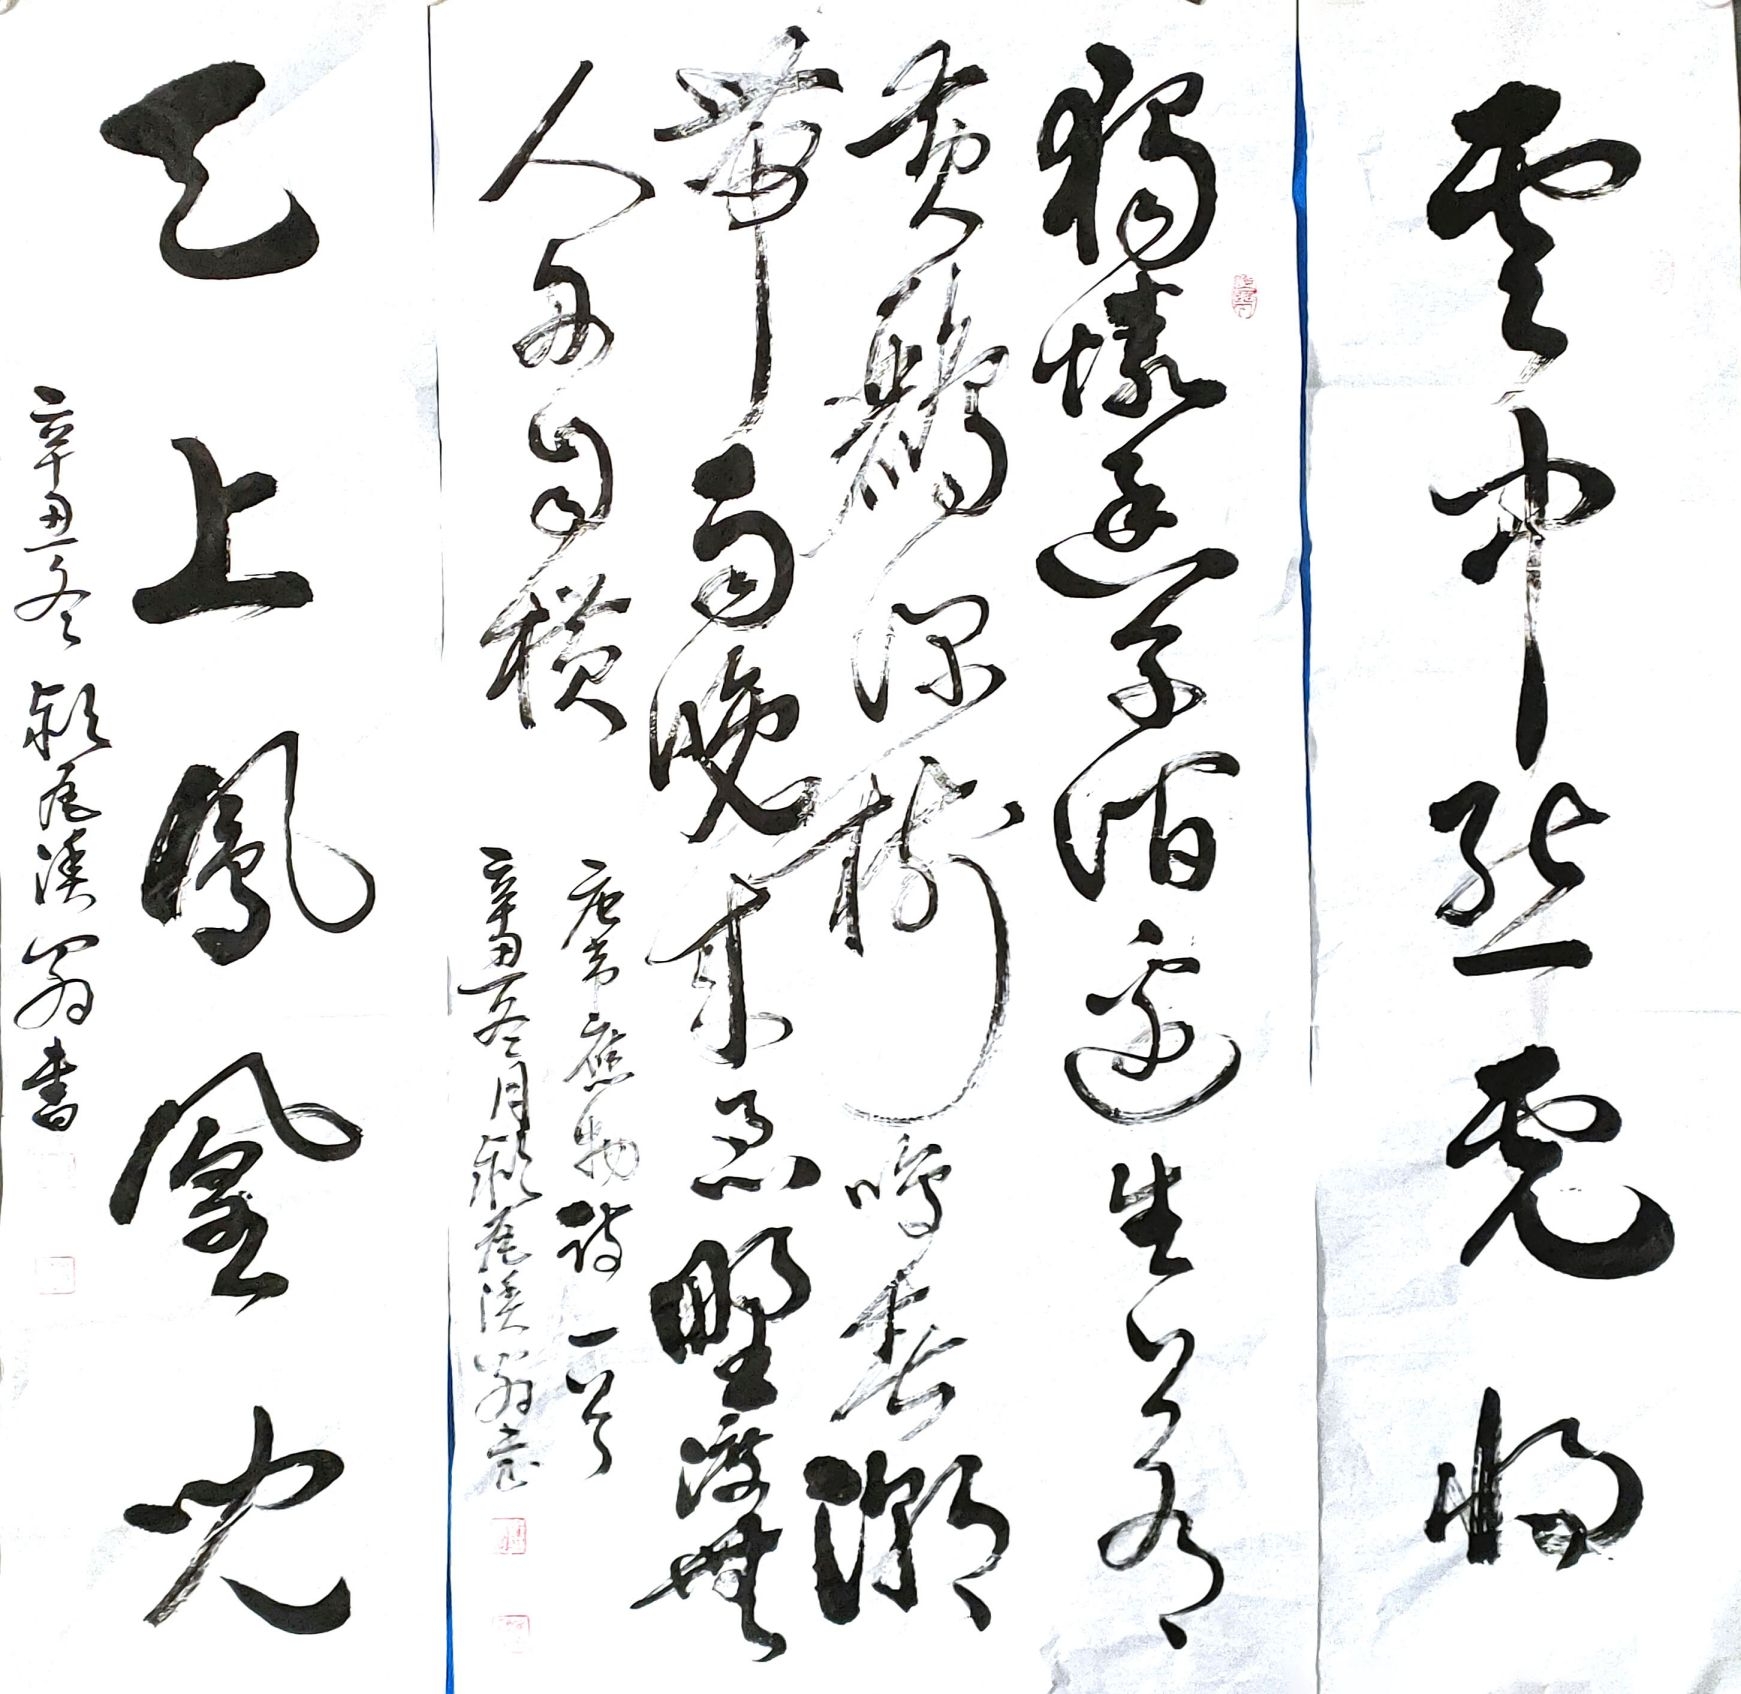 雲中熊虎將
獨憐幽草澗邊生上有
黃鸝深樹鳴春潮
帶雨晚來急野渡無
人舟自橫
唐韋應物詩一首
辛丑冬月潁尾溪翁
天上鳳凰兒
辛丑冬潁尾溪翁書